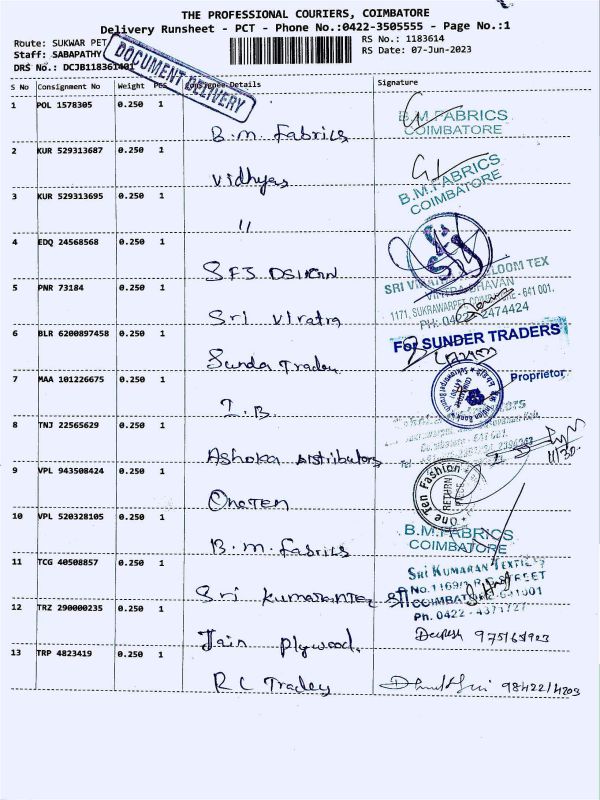 THE PROFESSIONAL COURIERS, COIMBATORE
Delivery Runsheet - PCT - Phone No.:0422-3505555 - Page No.:1
Route: SUKWAR PET
RS No.: 1183614
Staff: SABAPATHY
RS Date: 07-Jun-2023
DRS No.: DCJB118361401
DOCUMENT DELIVERY
S No Consignment No Weight PCS Consignee Details Signature
1 POL 1578305 0.250 1
B.M. Fabrics
B.M.FABRICS
COIMBATORE
2 KUR 529313687 0.250 1
Vidhyas
B.M.FABRICS
COIMBATORE
3 KUR 529313695 0.250 1
"
4 EDQ 24568568 0.250 1
SFS
SRI LOOM TEX
BHAVAN
5 PNR 73184 0.250 1
Sri Viratra
1171, SUKRAWARPET, COIMBATORE - 641 001.
PH: 0422 2474424
6 BLR 6200897458 0.250 1
Sunder Traders
For SUNDER TRADERS
Proprietor
7 MAA 101226675 0.250 1
I.B.
8 TNJ 22565629 0.250 1
Ashoka Distributors
11/30
9 VPL 943508424 0.250 1
One Ten
One Ten Fashion
RETURN
10 VPL 520328105 0.250 1
B.M. Fabrics
B.M.FABRICS
COIMBATORE
11 TCG 40508857 0.250 1
Sri Kumaran Tex
SRI KUMARAN TEXTILE
No.1169/ STREET
COIMBATORE-641001
Ph. 0422 - 4371727
12 TRZ 290000235 0.250 1
Jain Plywood.
Deepesh
13 TRP 4823419 0.250 1
RC Traders
98422/4203